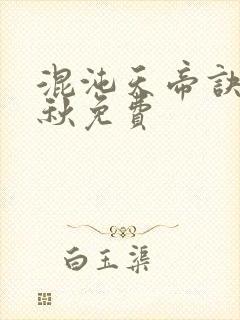 混沌天帝訣
秋免費
白玉渠